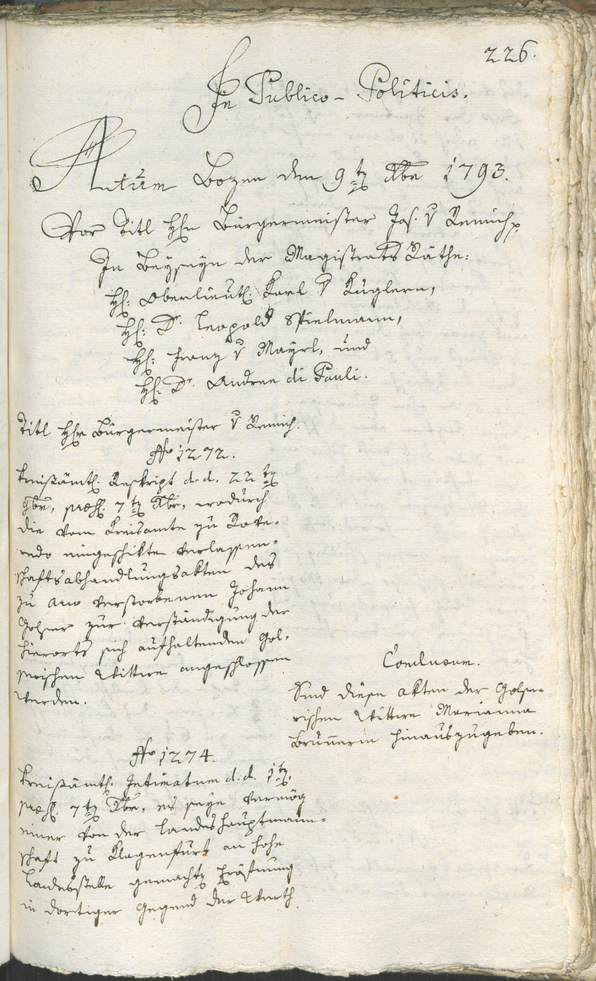 226.
In Publico-Politicis.
Actum Bozen den 9t 10br 1793.
Vor Titl Hhn Bürgermeister Jos. v Remich
In Beyseyn der Magistrats Räthe:
Hh: Oberlieut: Karl v Kuglern,
Hh: Dr. Leopold Spielmann,
Hh: Franz v Mayrl, und
Hh: Dr. Andree di Pauli.
Titl Hhr Bürgermeister v Remich.
No 1272.
Kreisämtl. Reskript d.d. 22t
9br, praes. 7t Xbr, wodurch
die vom Kreisamte zu Rove-
redo eingeschikte Verlassen-
schaftsabhandlungsakten des
zu verstorbenen Johann
Golser zur Verständigung der
hierorts sich aufhaltenden Gol-
serischen Wittwe angeschlossen
werden.
Conclusum.
Sind diese Akten der Golse-
rischen Wittwe Marianna
Brunnerin hinauszugeben.
No 1274.
Kreisämtl. Intimatum d.d. 1t,
praes. 7t Xbr, es seye vermög
einer von der Landeshauptmann-
schaft zu Klagenfurt an hohe
Landesstelle gemachte Eröfnung
in dortiger Gegend der Werth